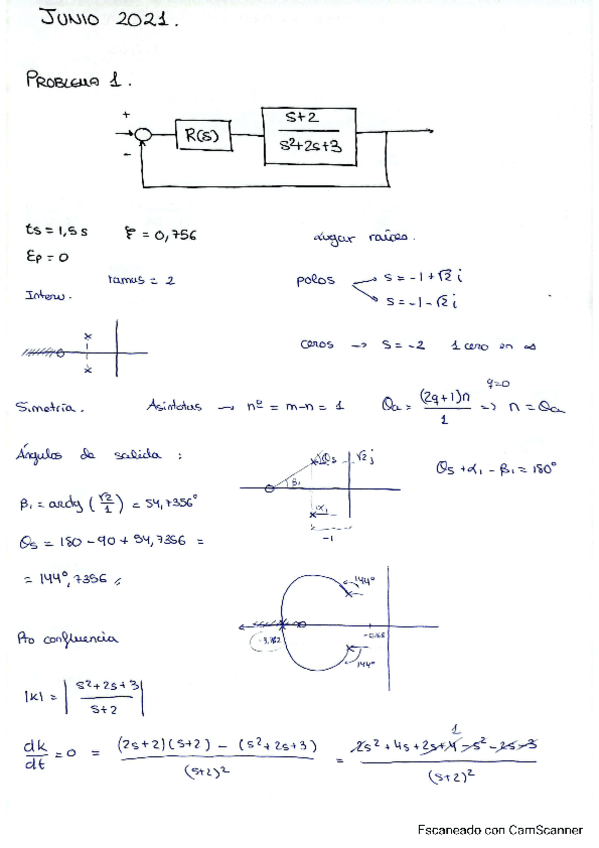 JUNIO 2021.
PROBLEMA 1.
+
R(s)
s+2
s²+2s+3
-
ts = 1,5 s ξ = 0,756
Ep = 0
Lugar raíces.
ramas = 2
polos s = -1 + √2 i
s = -1 - √2 i
ceros → s = -2 1 cero en ∞
Simetría. Asíntotas → nº = m-n = 1 θa = (2q+1)π / 1 q=0 ⇒ π = θa
Ángulos de salida :
θs √2 j
β1
α1
-1
θs + α1 - β1 = 180°
β1 = arctg (√2/1) = 54,7356°
θs = 180 - 90 + 54,7356 =
= 144°,7356
144°
-3,732
-0,268
144°
Pto confluencia
|K| = | s²+2s+3 / s+2 |
dk/dt = 0 = (2s+2)(s+2) - (s²+2s+3) / (s+2)² = 1 2s² + 4s + 2s + 4 - s² - 2s - 3 / (s+2)²
Escaneado con CamScanner